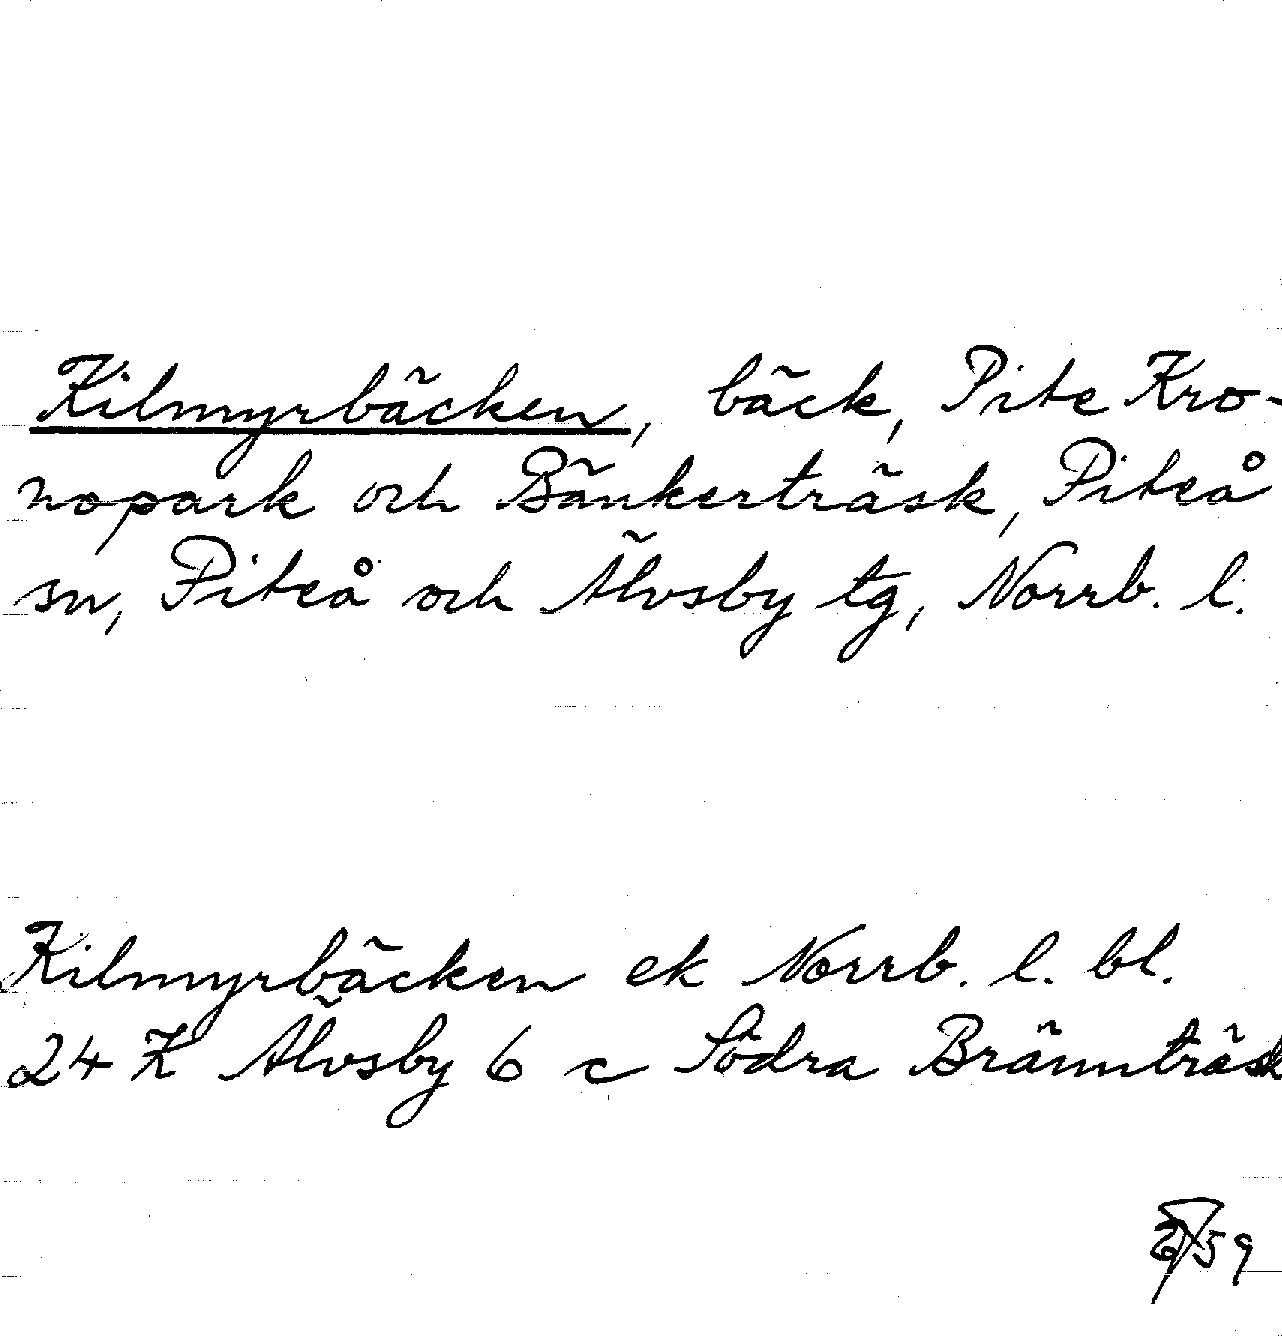 Kilmyrbäcken, bäck, Pite Kro-
nopark och Bänkerträsk, Piteå
sn, Piteå och Älvsby tg, Norrb. l.
Kilmyrbäcken ek Norrb. l. bl.
24 K Älvsby 6 c Södra Brännträsk